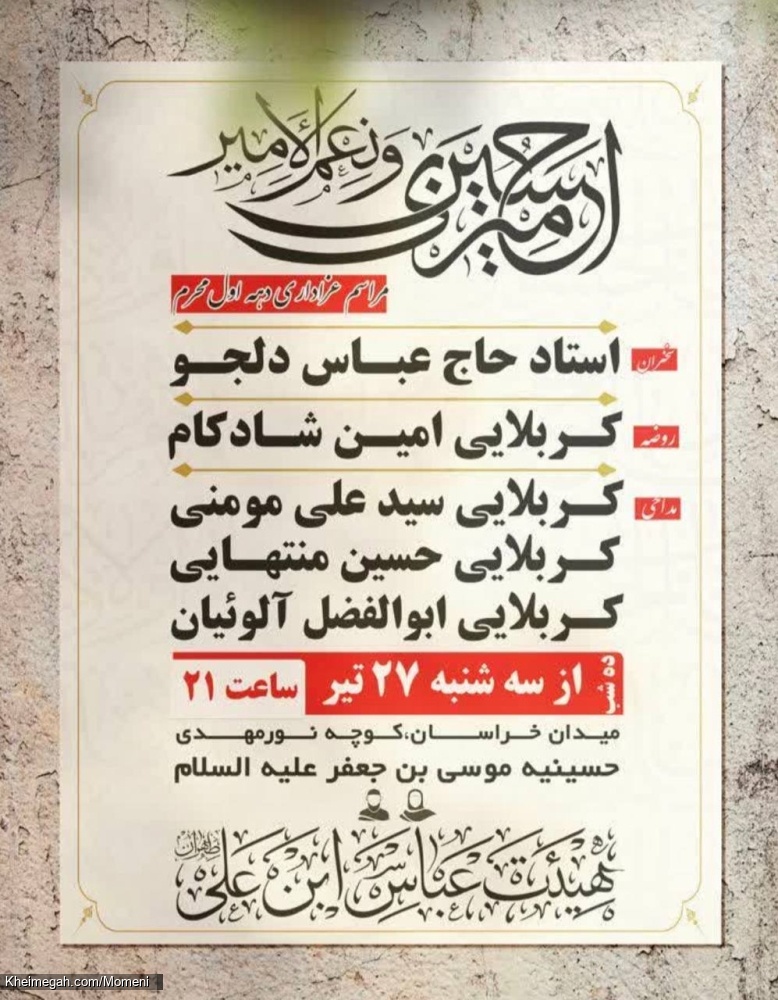 امیری حسین و نعم الامیر
مراسم عزاداری دهه اول محرم
سخنران استاد حاج عباس دلجو
روضه کربلایی امین شادکام
مداحی کربلایی سید علی مومنی
کربلایی حسین منتهایی
کربلایی ابوالفضل آلوئیان
ده شب از سه شنبه ۲۷ تیر ساعت ۲۱
میدان خراسان،کوچه نورمهدی
حسینیه موسی بن جعفر علیه السلام
هیئت عباس ابن علی طهران
Kheimegah.com/Momeni